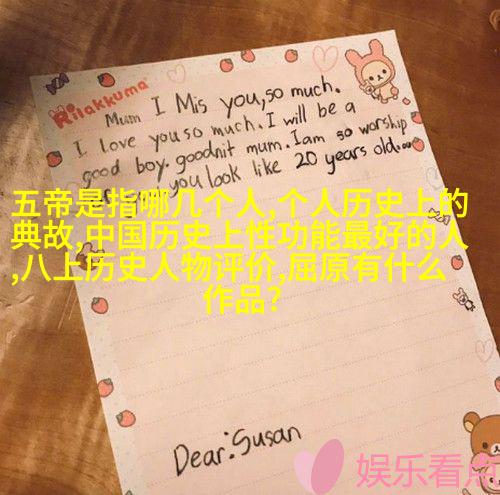 Rilakkuma
Mum I Mis you,so much.
I love you so much. I will be a
good boy. goodnit mum. I am so worship
you look like 20 years old.
五帝是指哪几个人,个人历史上的
典故,中国历史上性功能最好的人
,八上历史人物评价,屈原有什么
作品?
Dear:Susan
娱乐看点